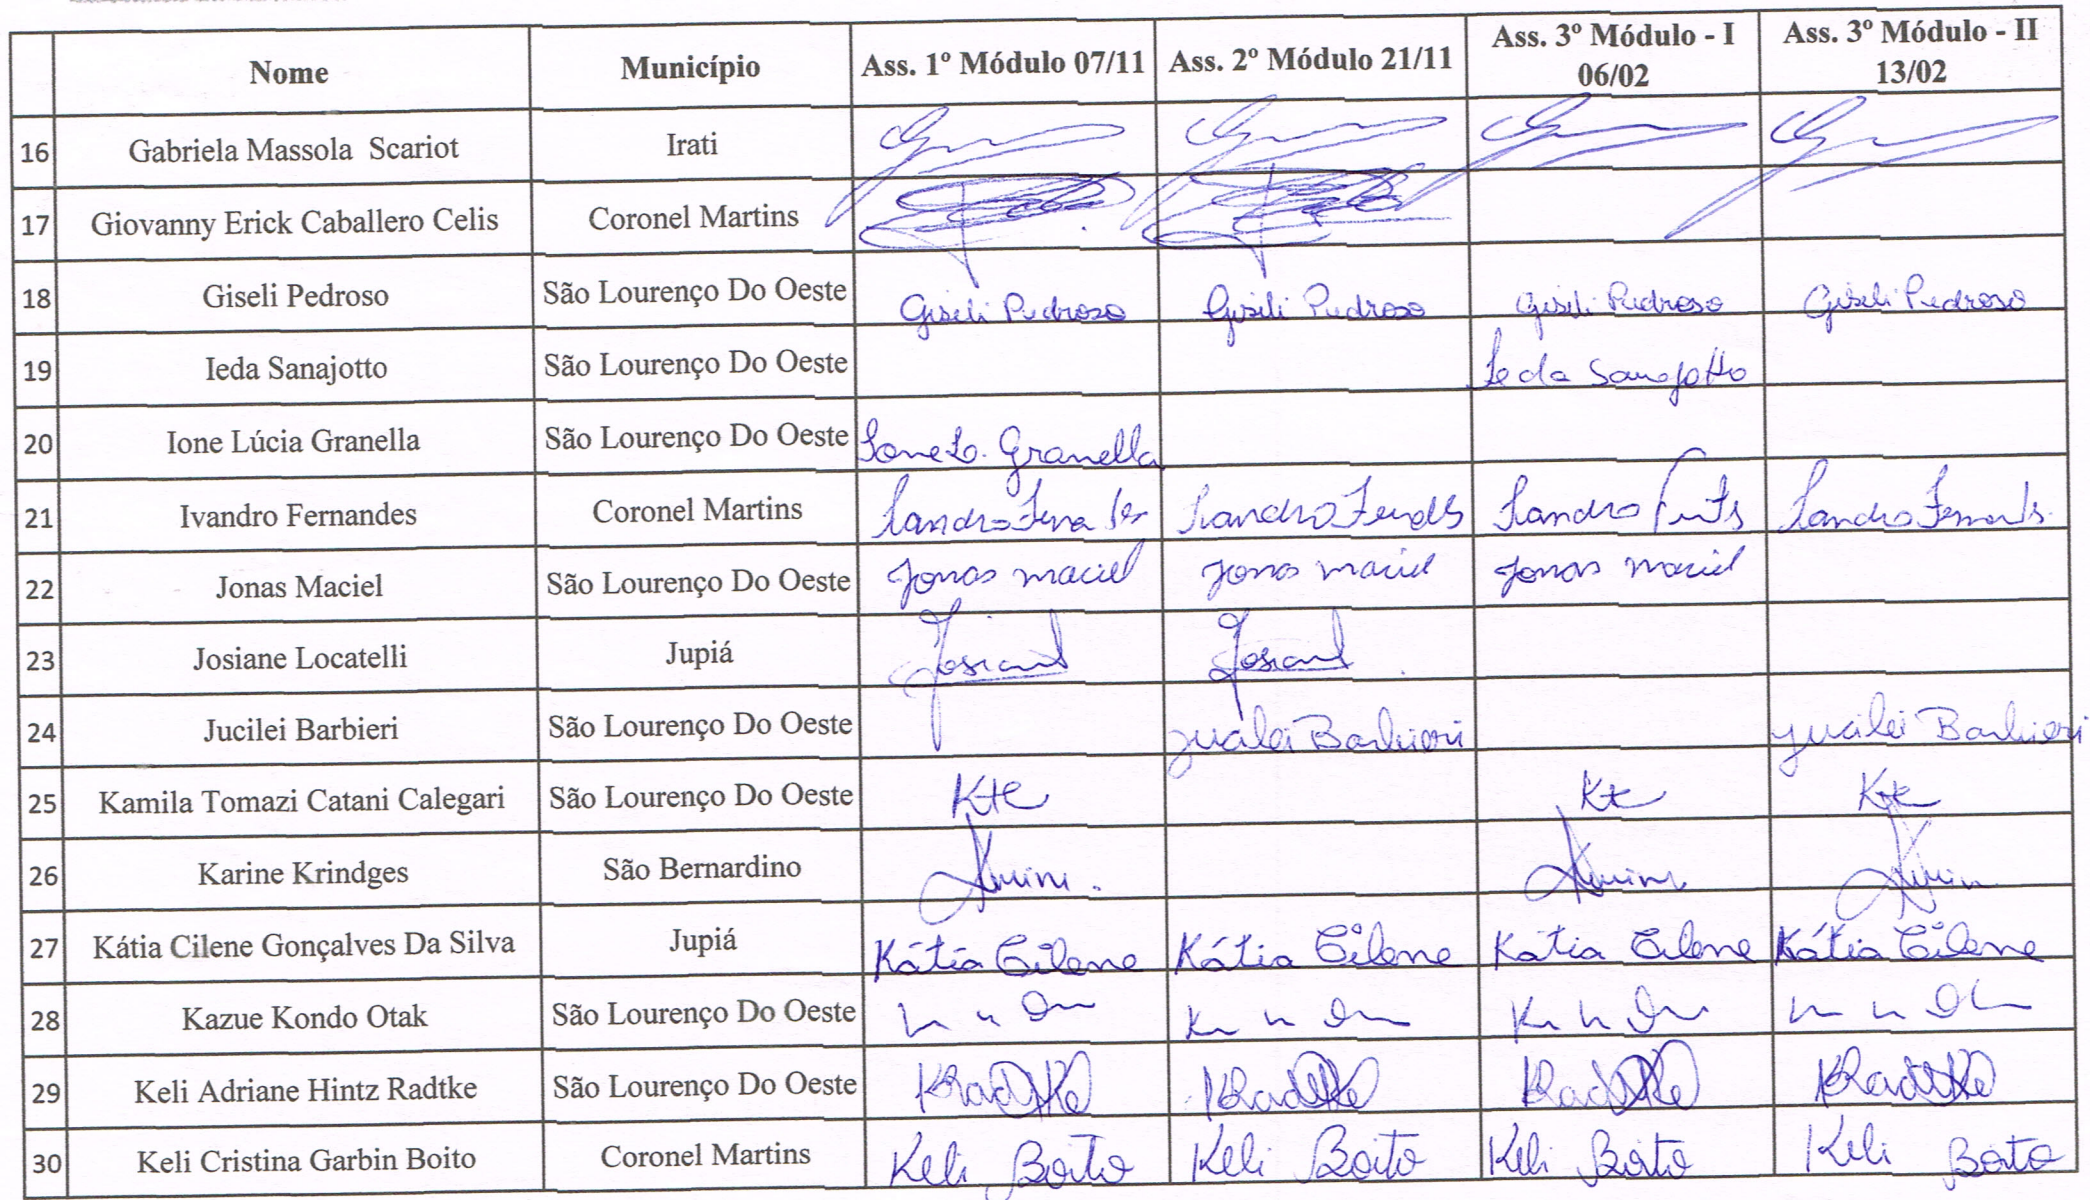 Nome Município Ass. 1º Módulo 07/11 Ass. 2º Módulo 21/11 Ass. 3º Módulo - I 06/02 Ass. 3º Módulo - II 13/02
16 Gabriela Massola Scariot Irati
17 Giovanny Erick Caballero Celis Coronel Martins
18 Giseli Pedroso São Lourenço Do Oeste Giseli Pedroso Giseli Pedroso Giseli Pedroso Giseli Pedroso
19 Ieda Sanajotto São Lourenço Do Oeste Ieda Sanajotto
20 Ione Lúcia Granella São Lourenço Do Oeste Ione L. Granella
21 Ivandro Fernandes Coronel Martins
22 Jonas Maciel São Lourenço Do Oeste Jonas Maciel Jonas Maciel Jonas Maciel
23 Josiane Locatelli Jupiá
24 Jucilei Barbieri São Lourenço Do Oeste Jucilei Barbieri Jucilei Barbieri
25 Kamila Tomazi Catani Calegari São Lourenço Do Oeste
26 Karine Krindges São Bernardino
27 Kátia Cilene Gonçalves Da Silva Jupiá Kátia Cilene Kátia Cilene Kátia Cilene Kátia Cilene
28 Kazue Kondo Otak São Lourenço Do Oeste
29 Keli Adriane Hintz Radtke São Lourenço Do Oeste KRadtke KRadtke KRadtke KRadtke
30 Keli Cristina Garbin Boito Coronel Martins Keli Boito Keli Boito Keli Boito Keli Boito